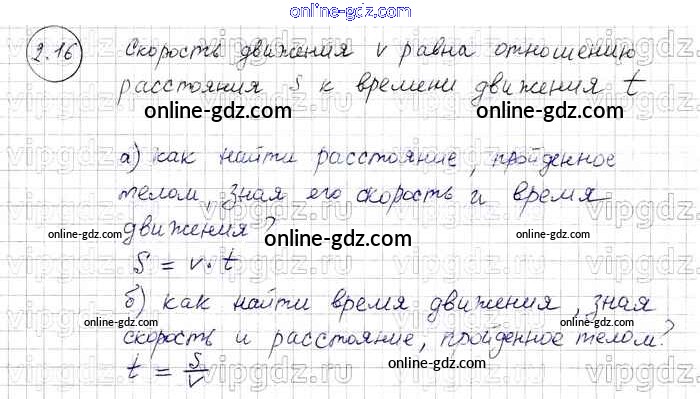 online-gdz.com
2.16 Скорость движения v равна отношению
расстояния s к времени движения t
online-gdz.com
а) как найти расстояние, пройденное
телом, зная его скорость и время
online-gdz.com
движения?
online-gdz.com
S = v · t
б) как найти время движения, зная
online-gdz.com online-gdz.com online-gdz.com
скорость и расстояние, пройденное телом?
online-gdz.com
t = S/v
vipgdz.com vipgdz.com vipgdz.com